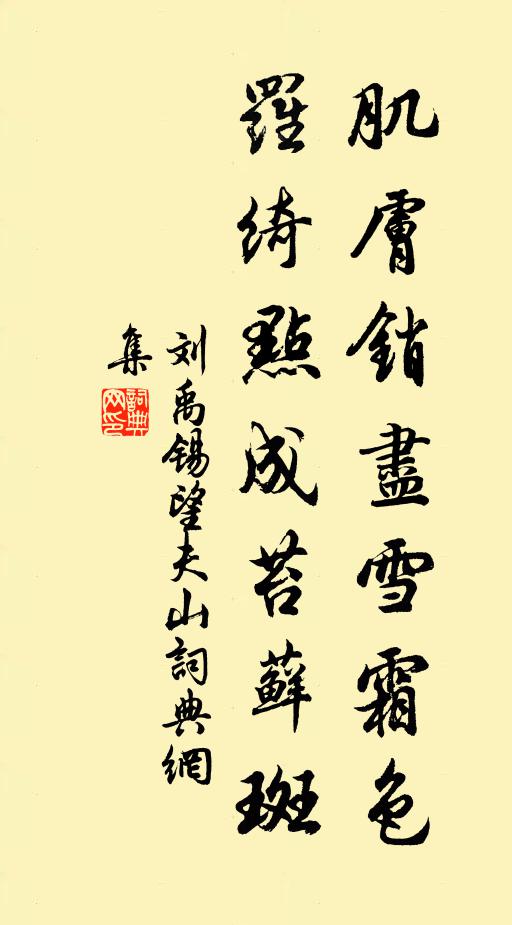 肌膚銷盡雪霜色
羅綺點成苔蘚斑
刘禹錫望夫山詞典網
集
詞典網印